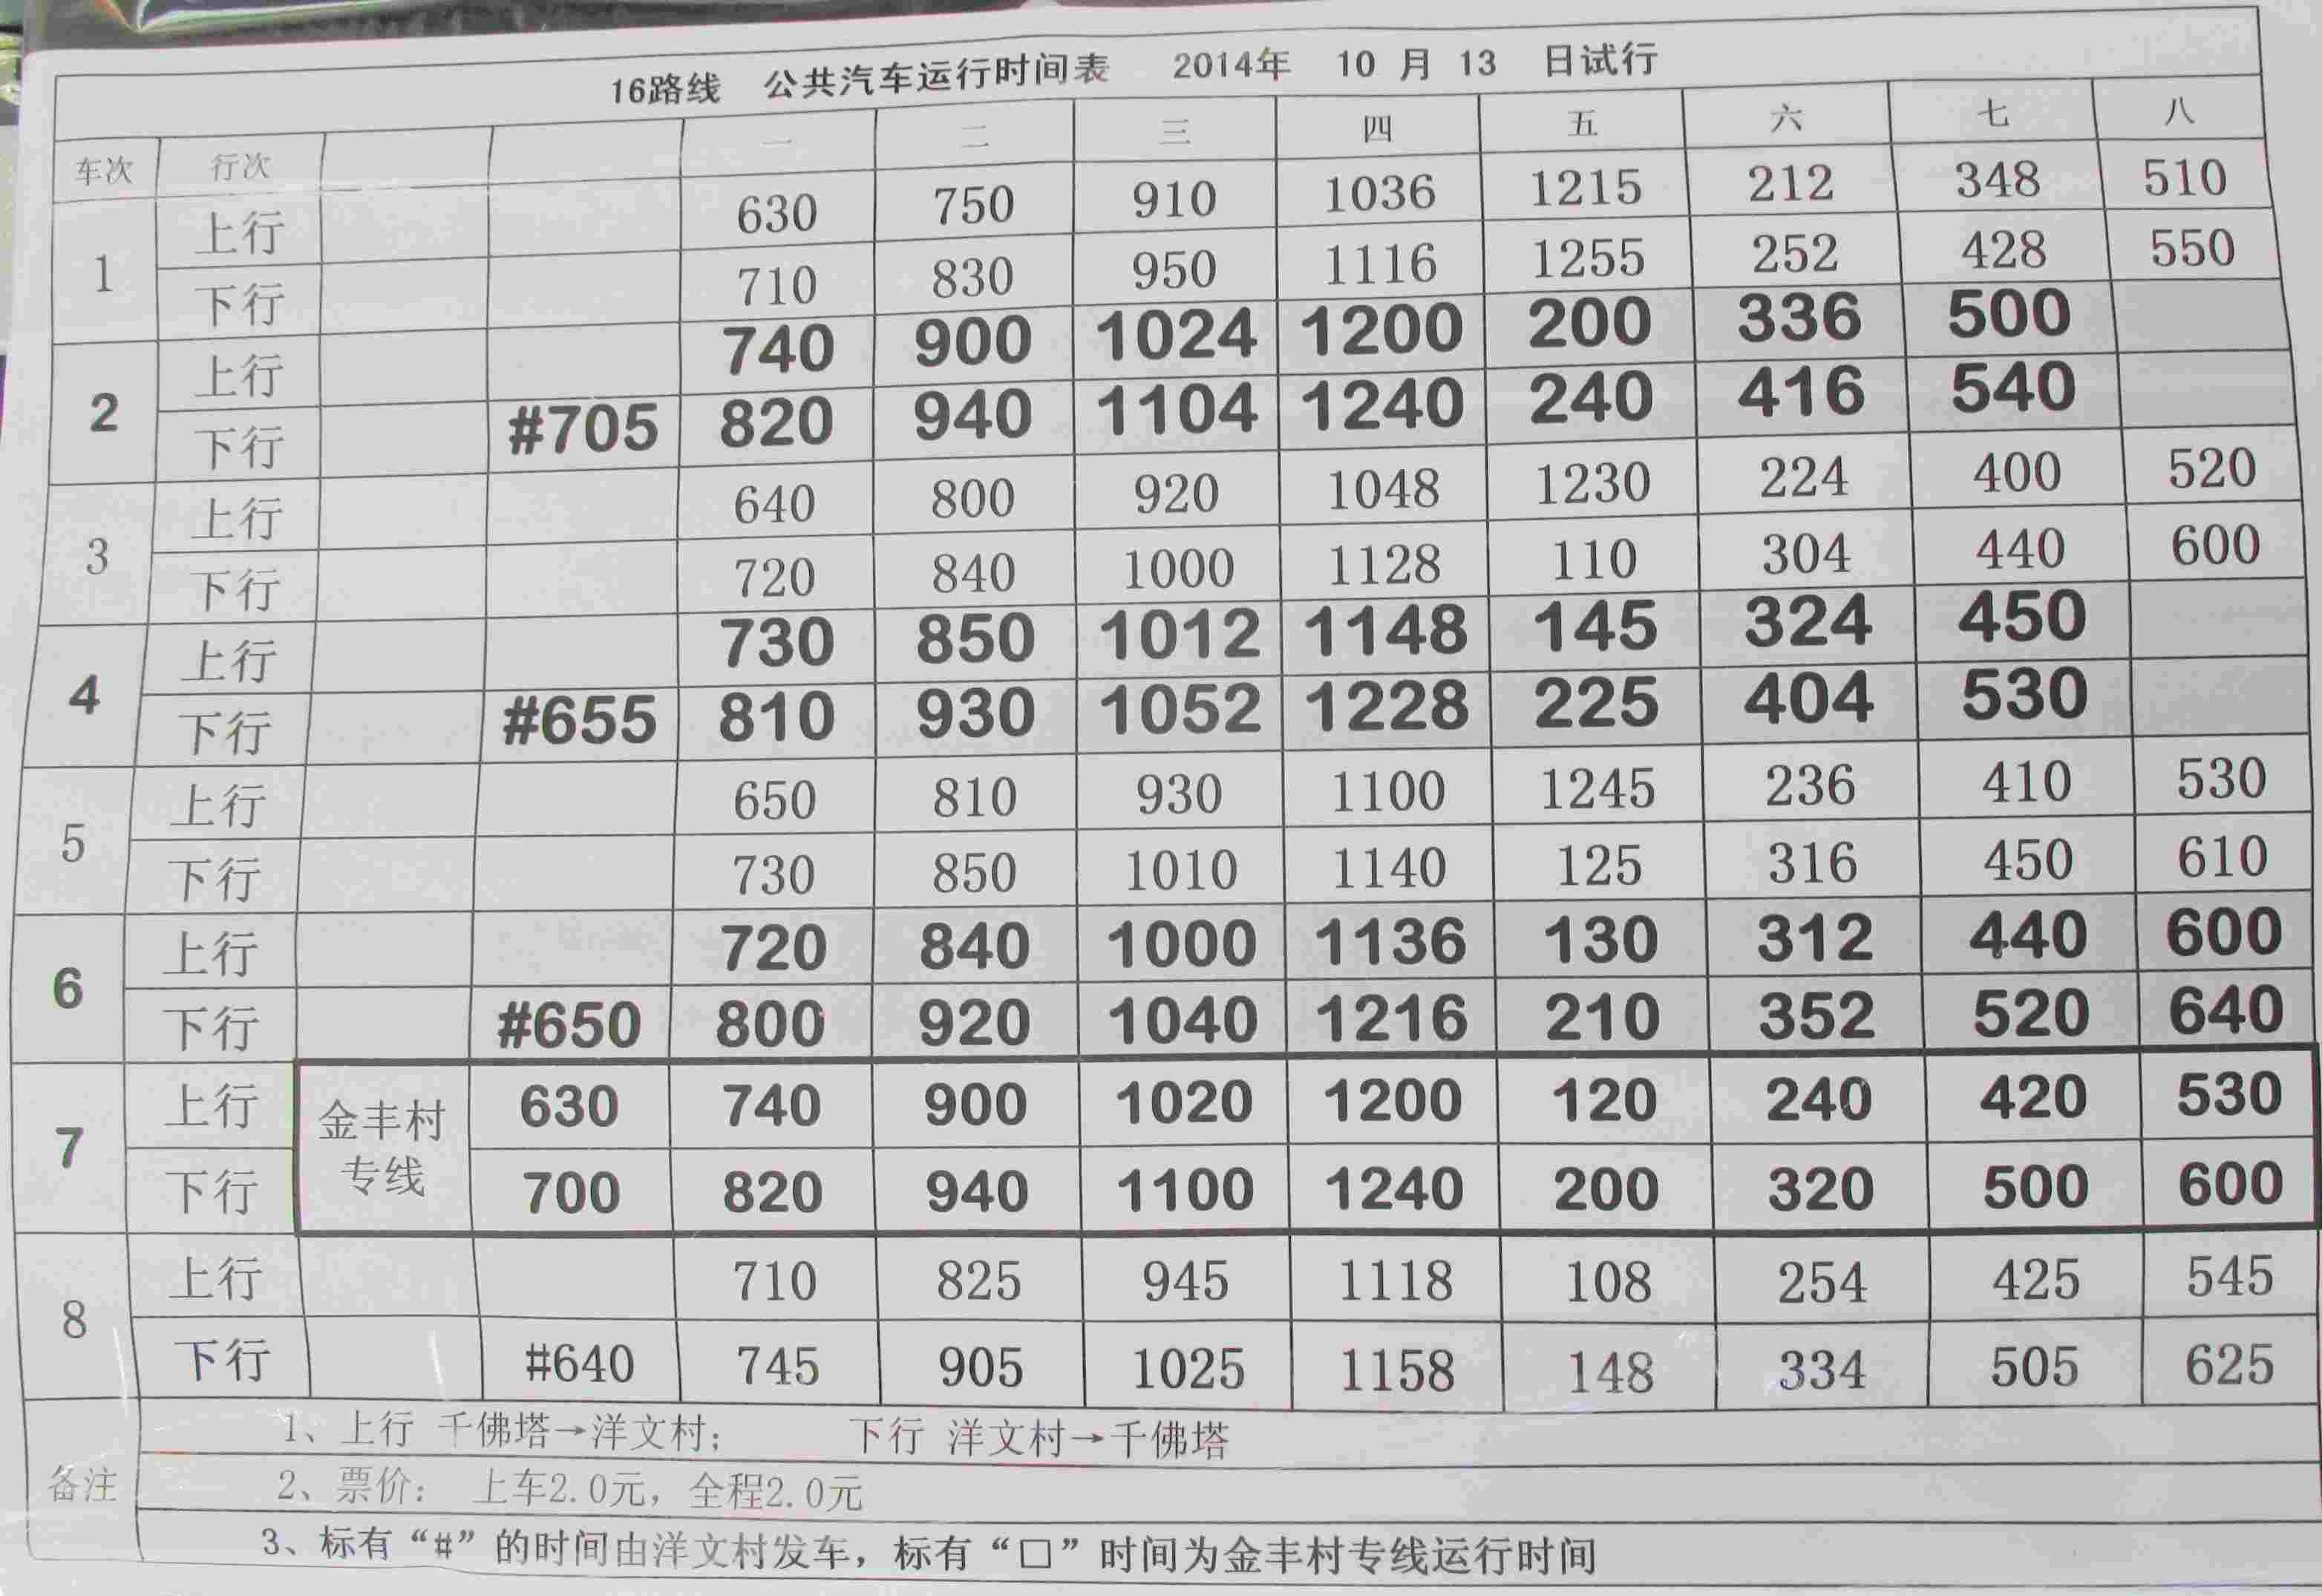 16路线 公共汽车运行时间表 2014年 10 月 13 日试行
车次 行次 一 二 三 四 五 六 七 八
1 上行 630 750 910 1036 1215 212 348 510
下行 710 830 950 1116 1255 252 428 550
2 上行 740 900 1024 1200 200 336 500
下行 #705 820 940 1104 1240 240 416 540
3 上行 640 800 920 1048 1230 224 400 520
下行 720 840 1000 1128 110 304 440 600
4 上行 730 850 1012 1148 145 324 450
下行 #655 810 930 1052 1228 225 404 530
5 上行 650 810 930 1100 1245 236 410 530
下行 730 850 1010 1140 125 316 450 610
6 上行 720 840 1000 1136 130 312 440 600
下行 #650 800 920 1040 1216 210 352 520 640
7 上行 金丰村 630 740 900 1020 1200 120 240 420 530
下行 专线 700 820 940 1100 1240 200 320 500 600
8 上行 710 825 945 1118 108 254 425 545
下行 #640 745 905 1025 1158 148 334 505 625
备注 1、上行 千佛塔→洋文村; 下行 洋文村→千佛塔
2、票价: 上车2.0元，全程2.0元
3、标有“#”的时间由洋文村发车，标有“□”时间为金丰村专线运行时间